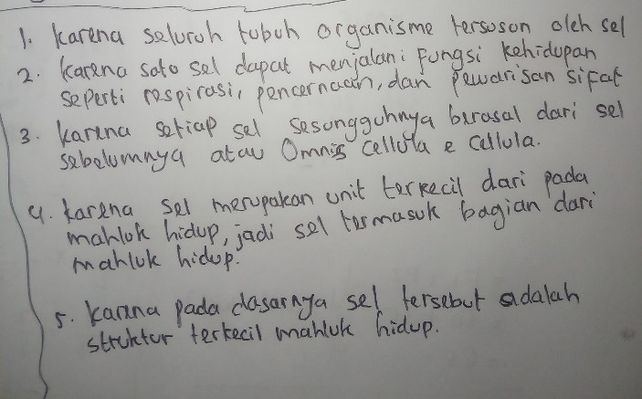 1. karena seluruh tubuh organisme tersusun oleh sel
2. karena satu sel dapat menjalani fungsi kehidupan
seperti respirasi, pencernaan, dan pewarisan sifat
3. karena setiap sel sesungguhnya berasal dari sel
sebelumnya atau Omnis cellula e cellula.
4. karena sel merupakan unit terkecil dari pada
mahluk hidup, jadi sel termasuk bagian dari
mahluk hidup.
5. karena pada dasarnya sel tersebut adalah
struktur terkecil mahluk hidup.